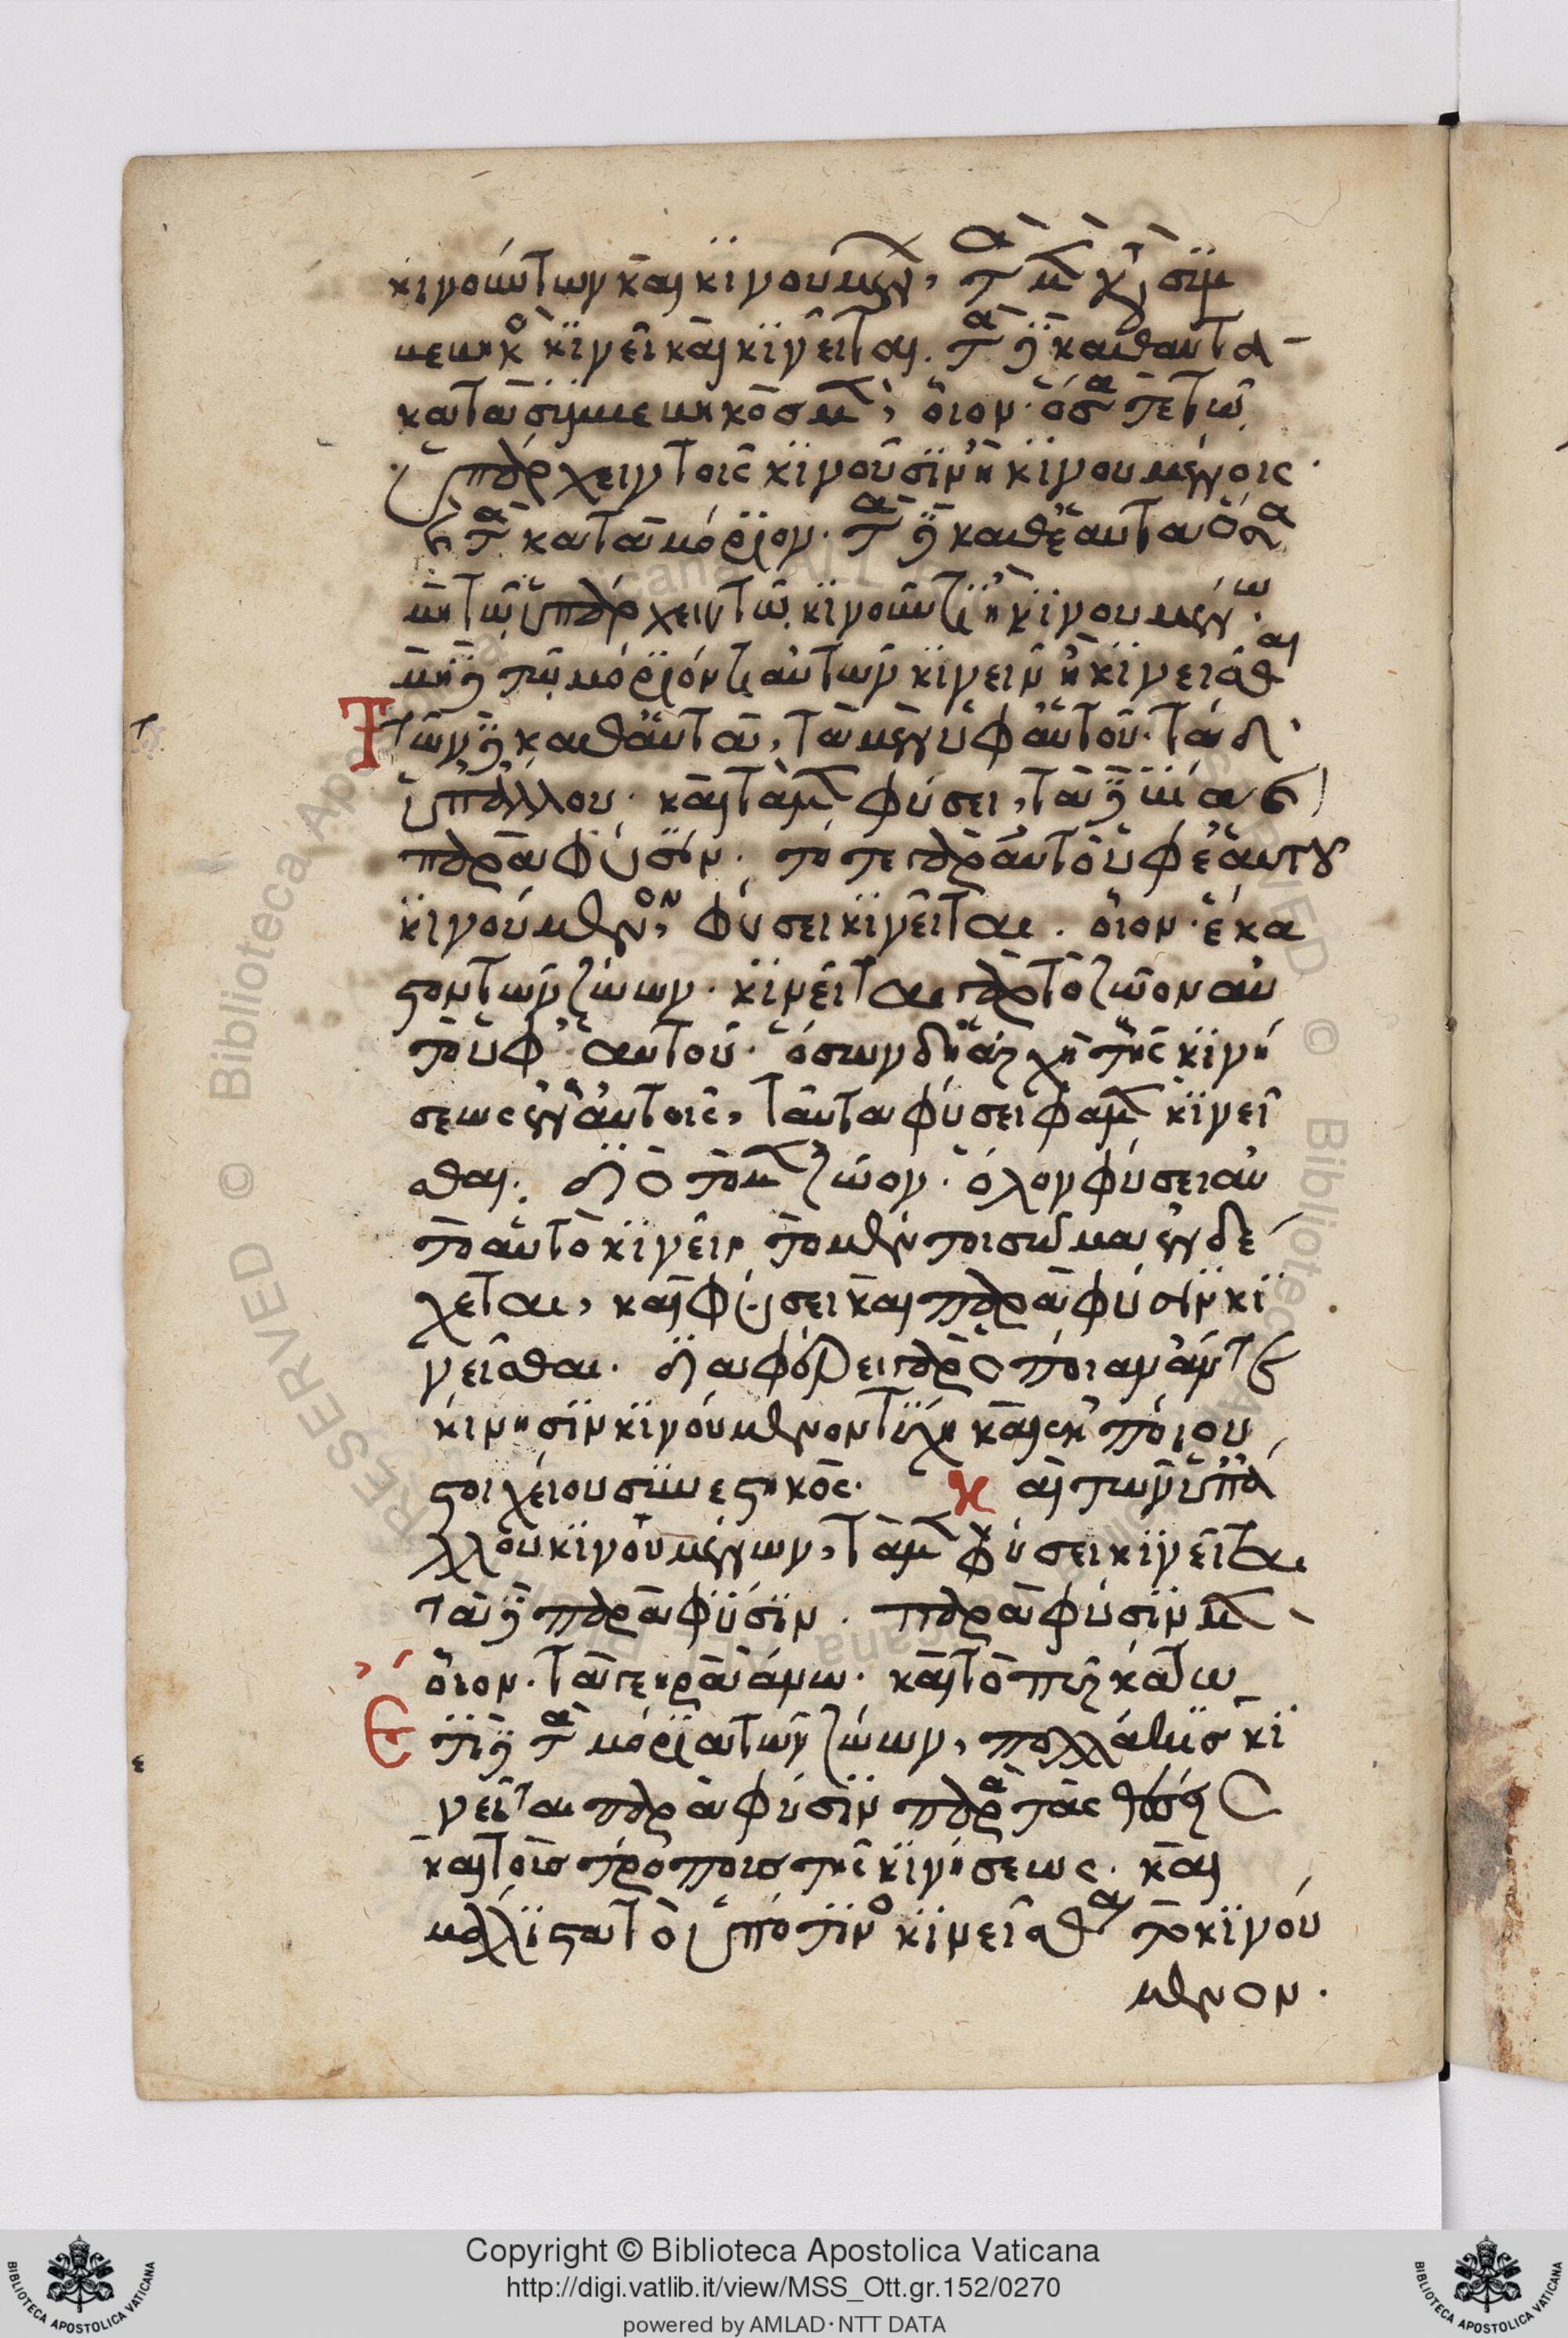 κινούντων καὶ κινουμέν, τὰ μ κτ συμ
βεβηκὸ κινεῖ καὶ κινεῖται. τὰ δὲ καθαυτά
κατὰ συμβεβηκὸς μ, οἷον. ὅσα τε τῶ
ὑπάρχειν τοῖς κινοῦσιν ἢ κινουμένοις.
κ τὰ κατὰ μόριον. τὰ δὲ καθ' ἑαυτὰ ὅσα
μὴ τῶ ὑπάρχειν τῶ κινοῦντι ἢ κινουμένω.
μὴ δὲ τῶ μόριόν τι αὐτῶν κινεῖν ἢ κινεῖσθαι
Τῶν δὲ καθαυτὰ, τὰ μὲν ὑφ' αὑτοῦ. τὰ δ'
ὑπ' ἄλλου. καὶ τὰ μ φύσει, τὰ δὲ βία κ
παρὰ φύσιν. τό τε γὰρ αὐτὸ ὑφ' ἑαυτοῦ
κινούμενον, φύσει κινεῖται. οἷον. ἕκα
στον τῶν ζώων. κινεῖται γὰρ τὸ ζῶον αὐ
τὸ ὑφ' αὑτοῦ. ὅσων δ' ἡ ἀρχὴ τῆς κινή
σεως ἐν αὐτοῖς, ταῦτα φύσει φαμ κινεῖ
σθαι. διὸ τὸ μ ζῶον. ὅλον φύσει αὐ
τὸ αὑτὸ κινεῖ, τὸ μέντοι σῶμα ἐνδέ
χεται, καὶ φύσει καὶ παρὰ φύσιν κι
νεῖσθαι. διαφέρει γὰρ ὁποίαν ἂν τε
κίνησιν κινούμενον τύχη καὶ ἐκ ποίου
στοιχείου συνεστηκός. Καὶ τῶν ὑπ' ἄ
λλου κινουμένων, τὰ μ φύσει κινεῖται
τὰ δὲ παρὰ φύσιν. παρὰ φύσιν μ
οἷον. τὰ γεηρὰ ἄνω. καὶ τὸ πῦρ κάτω
Ἔτι δὲ τὰ μόρια τῶν ζώων, πολλάκις κι
νεῖται παρὰ φύσιν παρὰ τὰς θέσεις
καὶ τοὺς τρόπους τῆς κινήσεως. καὶ
μάλιστα τὸ ὑπό τινο κινεῖσθαι τὸ κινού
μενον.
Copyright © Biblioteca Apostolica Vaticana
http://digi.vatlib.it/view/MSS_Ott.gr.152/0270
powered by AMLAD·NTT DATA